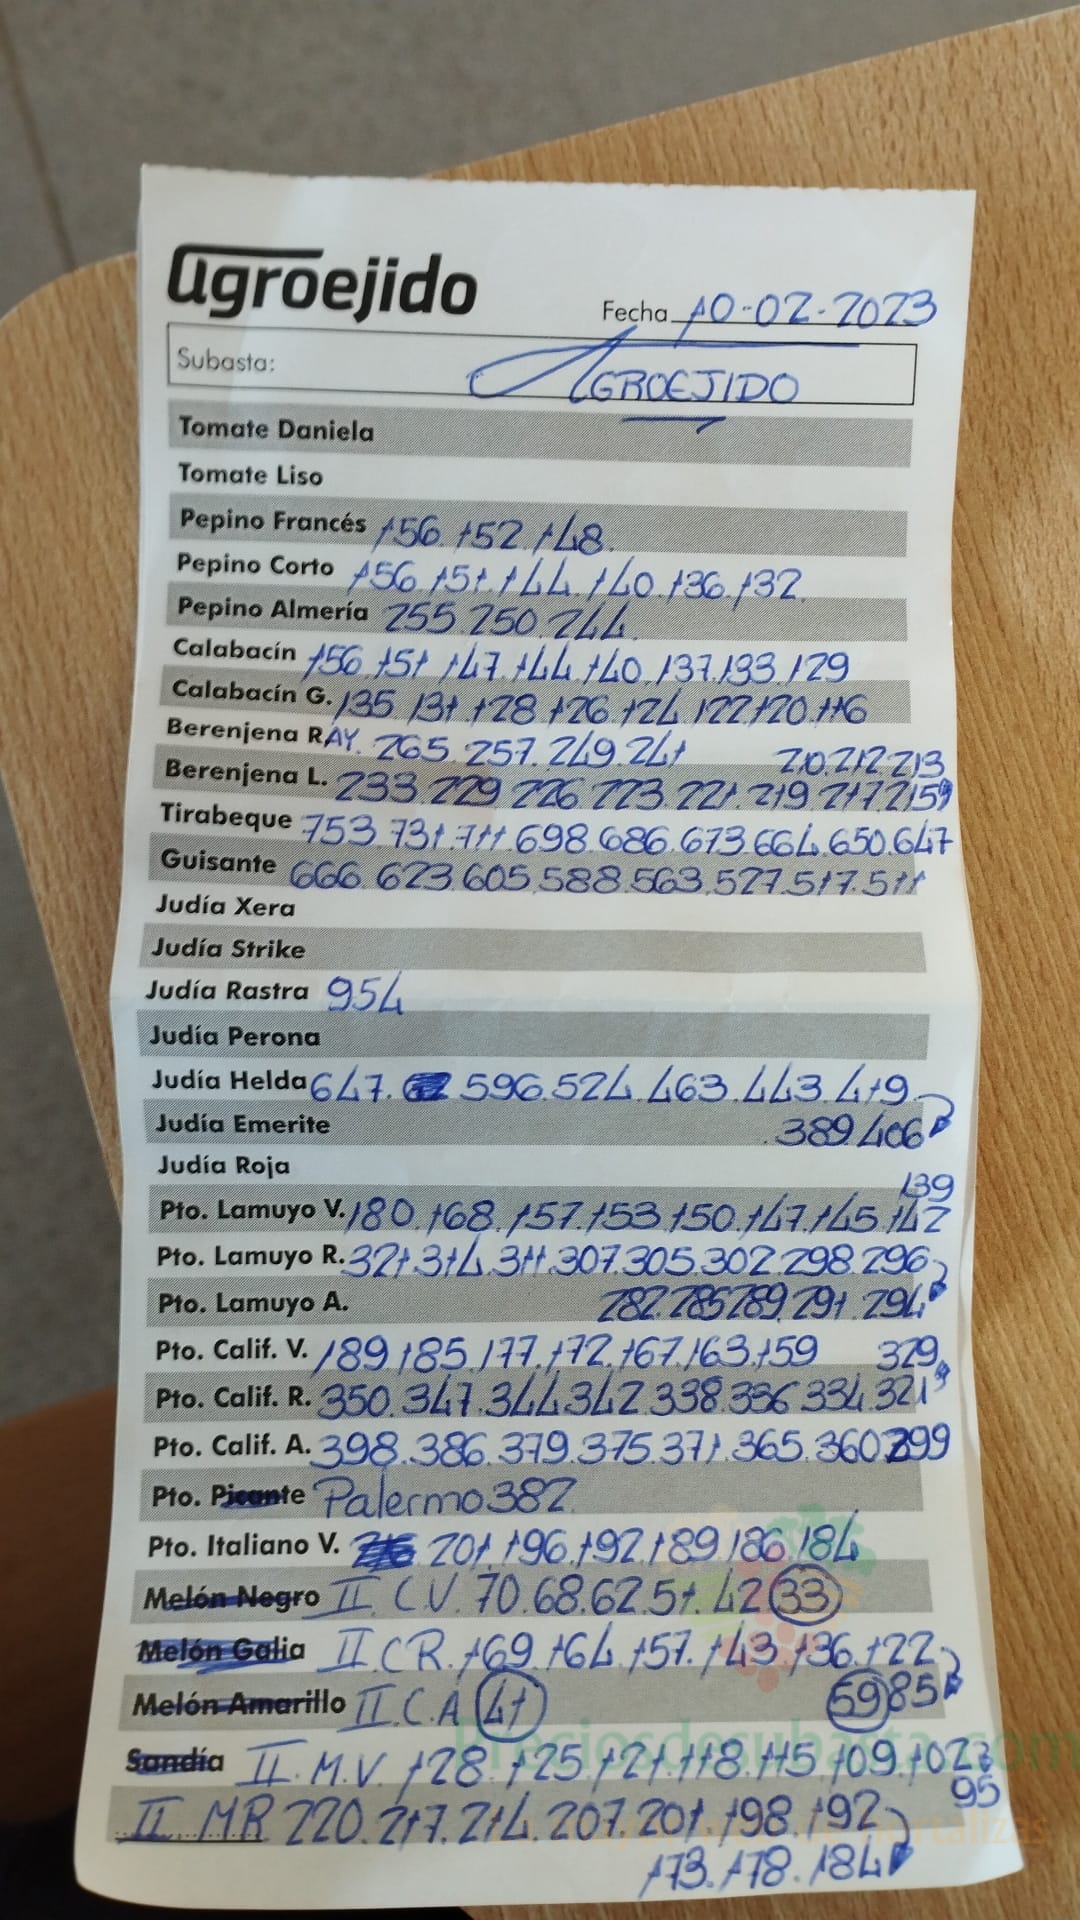 agroejido
Fecha 10-02-2023
Subasta: AGROEJIDO
Tomate Daniela
Tomate Liso
Pepino Francés 156.152.148.
Pepino Corto 156.151.144.140.136.132.
Pepino Almería 255.250.244.
Calabacín 156.151.147.144.140.137.133.129
Calabacín G. 135.131.128.126.124.122.120.116
Berenjena RAY. 265.257.249.241 210.212.213
Berenjena L. 233.229.226.223.221.219.217.215
Tirabeque 753.731.711.698.686.673.664.650.647
Guisante 666.623.605.588.563.527.517.511
Judía Xera
Judía Strike
Judía Rastra 954
Judía Perona
Judía Helda 647. 596.524.463.443.419
Judía Emerite 389.406
Judía Roja
139
Pto. Lamuyo V. 180.168.157.153.150.147.145.142
Pto. Lamuyo R. 321.314.311.307.305.302.298.296
Pto. Lamuyo A. 282.285.289.291.294
Pto. Calif. V. 189.185.177.172.167.163.159 329
Pto. Calif. R. 350.347.344.342.338.336.334.321
Pto. Calif. A. 398.386.379.375.371.365.360.299
Pto. Picante Palermo 382.
Pto. Italiano V. 201.196.192.189.186.184
Melón Negro II. C.V. 70.68.62.51.42 33
Melón Galia II.CR. 169.164.157.143.136.122
Melón Amarillo II.C.A 41 59 85
Sandía II.M.V. 128.125.121.118.115.109.102
95
II MR 220.217.214.207.201.198.192
173.178.184